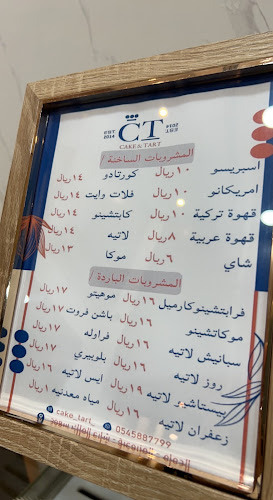 EST 2014
CT
CAKE & TART
المشروبات الساخنة /
اسبريسو ١٠ريال كورتادو ١٤ريال
امريكانو ١٠ريال فلات وايت ١٤ريال
قهوة تركية ١٠ريال كابتشينو ١٤ريال
قهوة عربية ٨ريال لاتيه ١٤ريال
شاي ٦ريال موكا ١٣ريال
المشروبات الباردة /
فرابتشينوكارميل ١٦ريال موهيتو ١٧ريال
موكاتشينو ١٦ريال باشن فروت ١٧ريال
سبانيش لاتيه ١٦ريال فراوله ريال
روز لاتيه ١٦ريال بلوبيري ريال
بيستاشيو لاتيه ١٩ريال ايس لاتيه ١٦ريال
زعفران لاتيه ١٦ريال مياه معدنيه ١ريال
cake_tart_
0545887799